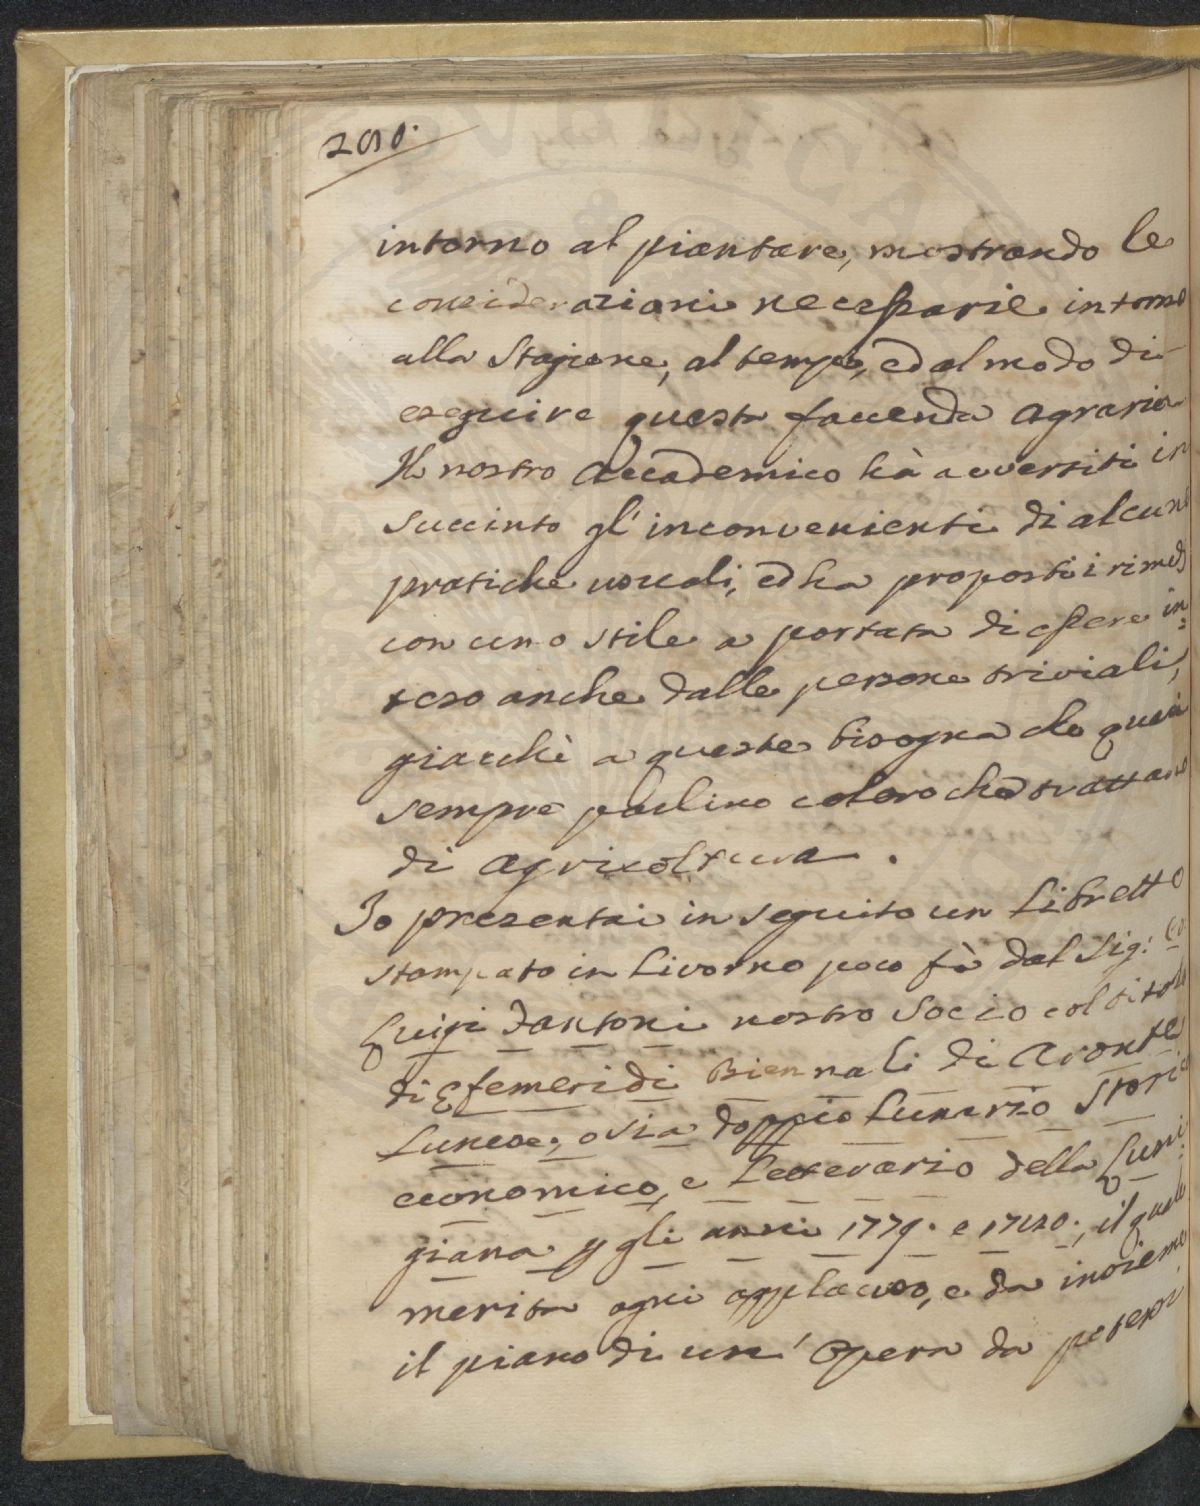 200.
intorno al piantare, mostrando le
considerazioni necessarie intorno
alla Stagione, al tempo, ed al modo di
eseguire questa faccenda Agraria
Il nostro Accademico hà avvertiti in
succinto gl'inconvenienti di alcune
pratiche usuali, ed ha proposti i rimedj
con uno stile a portata di essere in=
teso anche dalle persone triviali,
giacchè a queste bisogna che quasi
sempre parlino coloro che trattano
di Agricoltura.
Io presentai in seguito un Libretto
stampato in Livorno poco fà dal Sig:
Luigi Fantoni nostro Socio col titolo
di Efemeridi Biennali di Aronte
Lunese, o sia doppio Lunario Storico
economico, e Letterario della Luni
giana p gli anni 1779. e 1780., il quale
merita ogni applauso, e da insieme
il piano di un' Opera da potersi